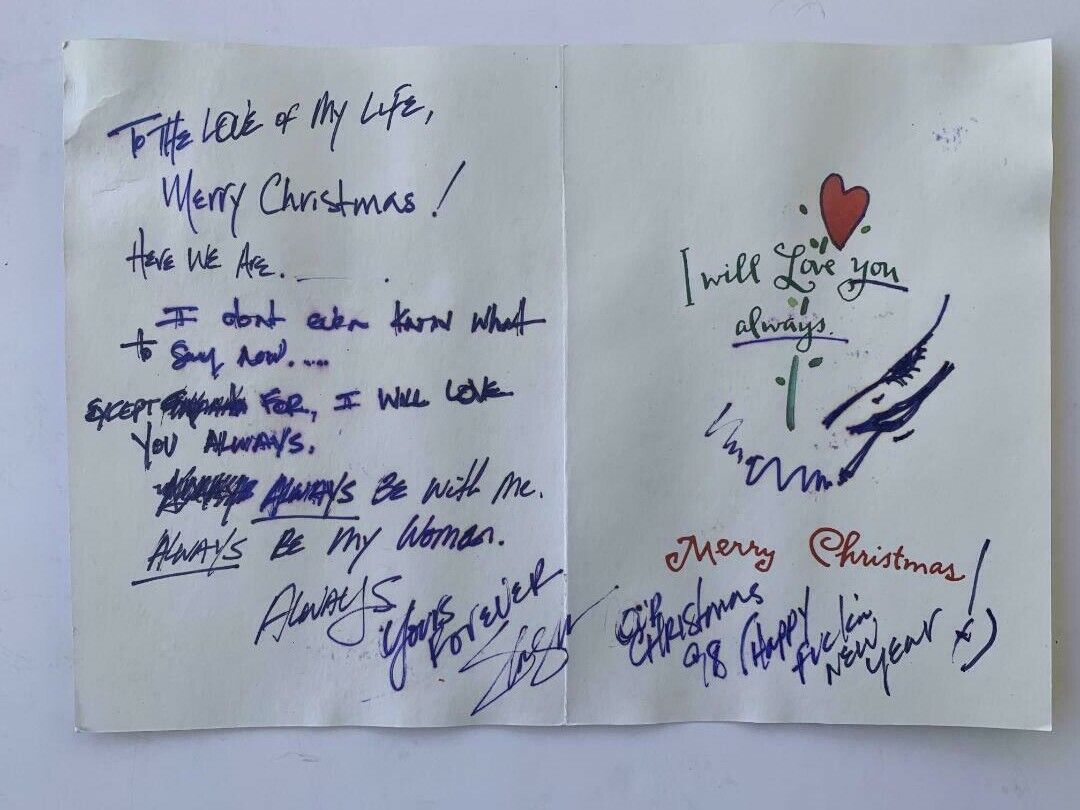 To THE LOVE of My LIFE,
Merry Christmas!
HERE WE ARE.
I dont even know what
to say now.....
EXCEPT FOR, I WILL LOVE
YOU ALWAYS.
ALWAYS BE with Me.
ALWAYS BE My Woman.
ALWAYS
Yours
FOREVER
I will Love you
always.
Merry Christmas!
CHRISTMAS
98 (HAPPY
FUCKIN
NEW
YEAR x)